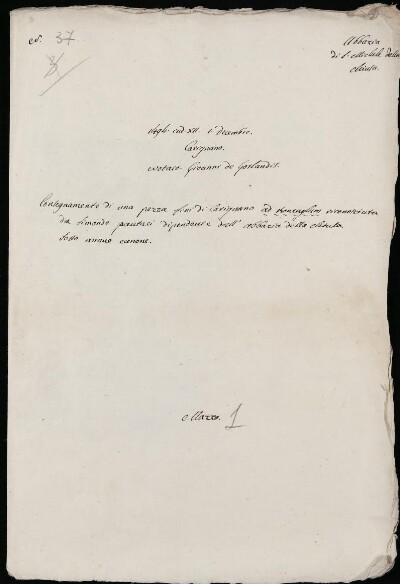 N. 37
Abbazia
di S. Michele della
Chiusa.
Carignano.
Notaro Giovanni de Gorlandis.
Consegnamento di una pezza fini di Carignano ad riconosciuta
da dipendente dall'Abbazia della Chiusa
sotto annuo canone.
Mazzo. 1